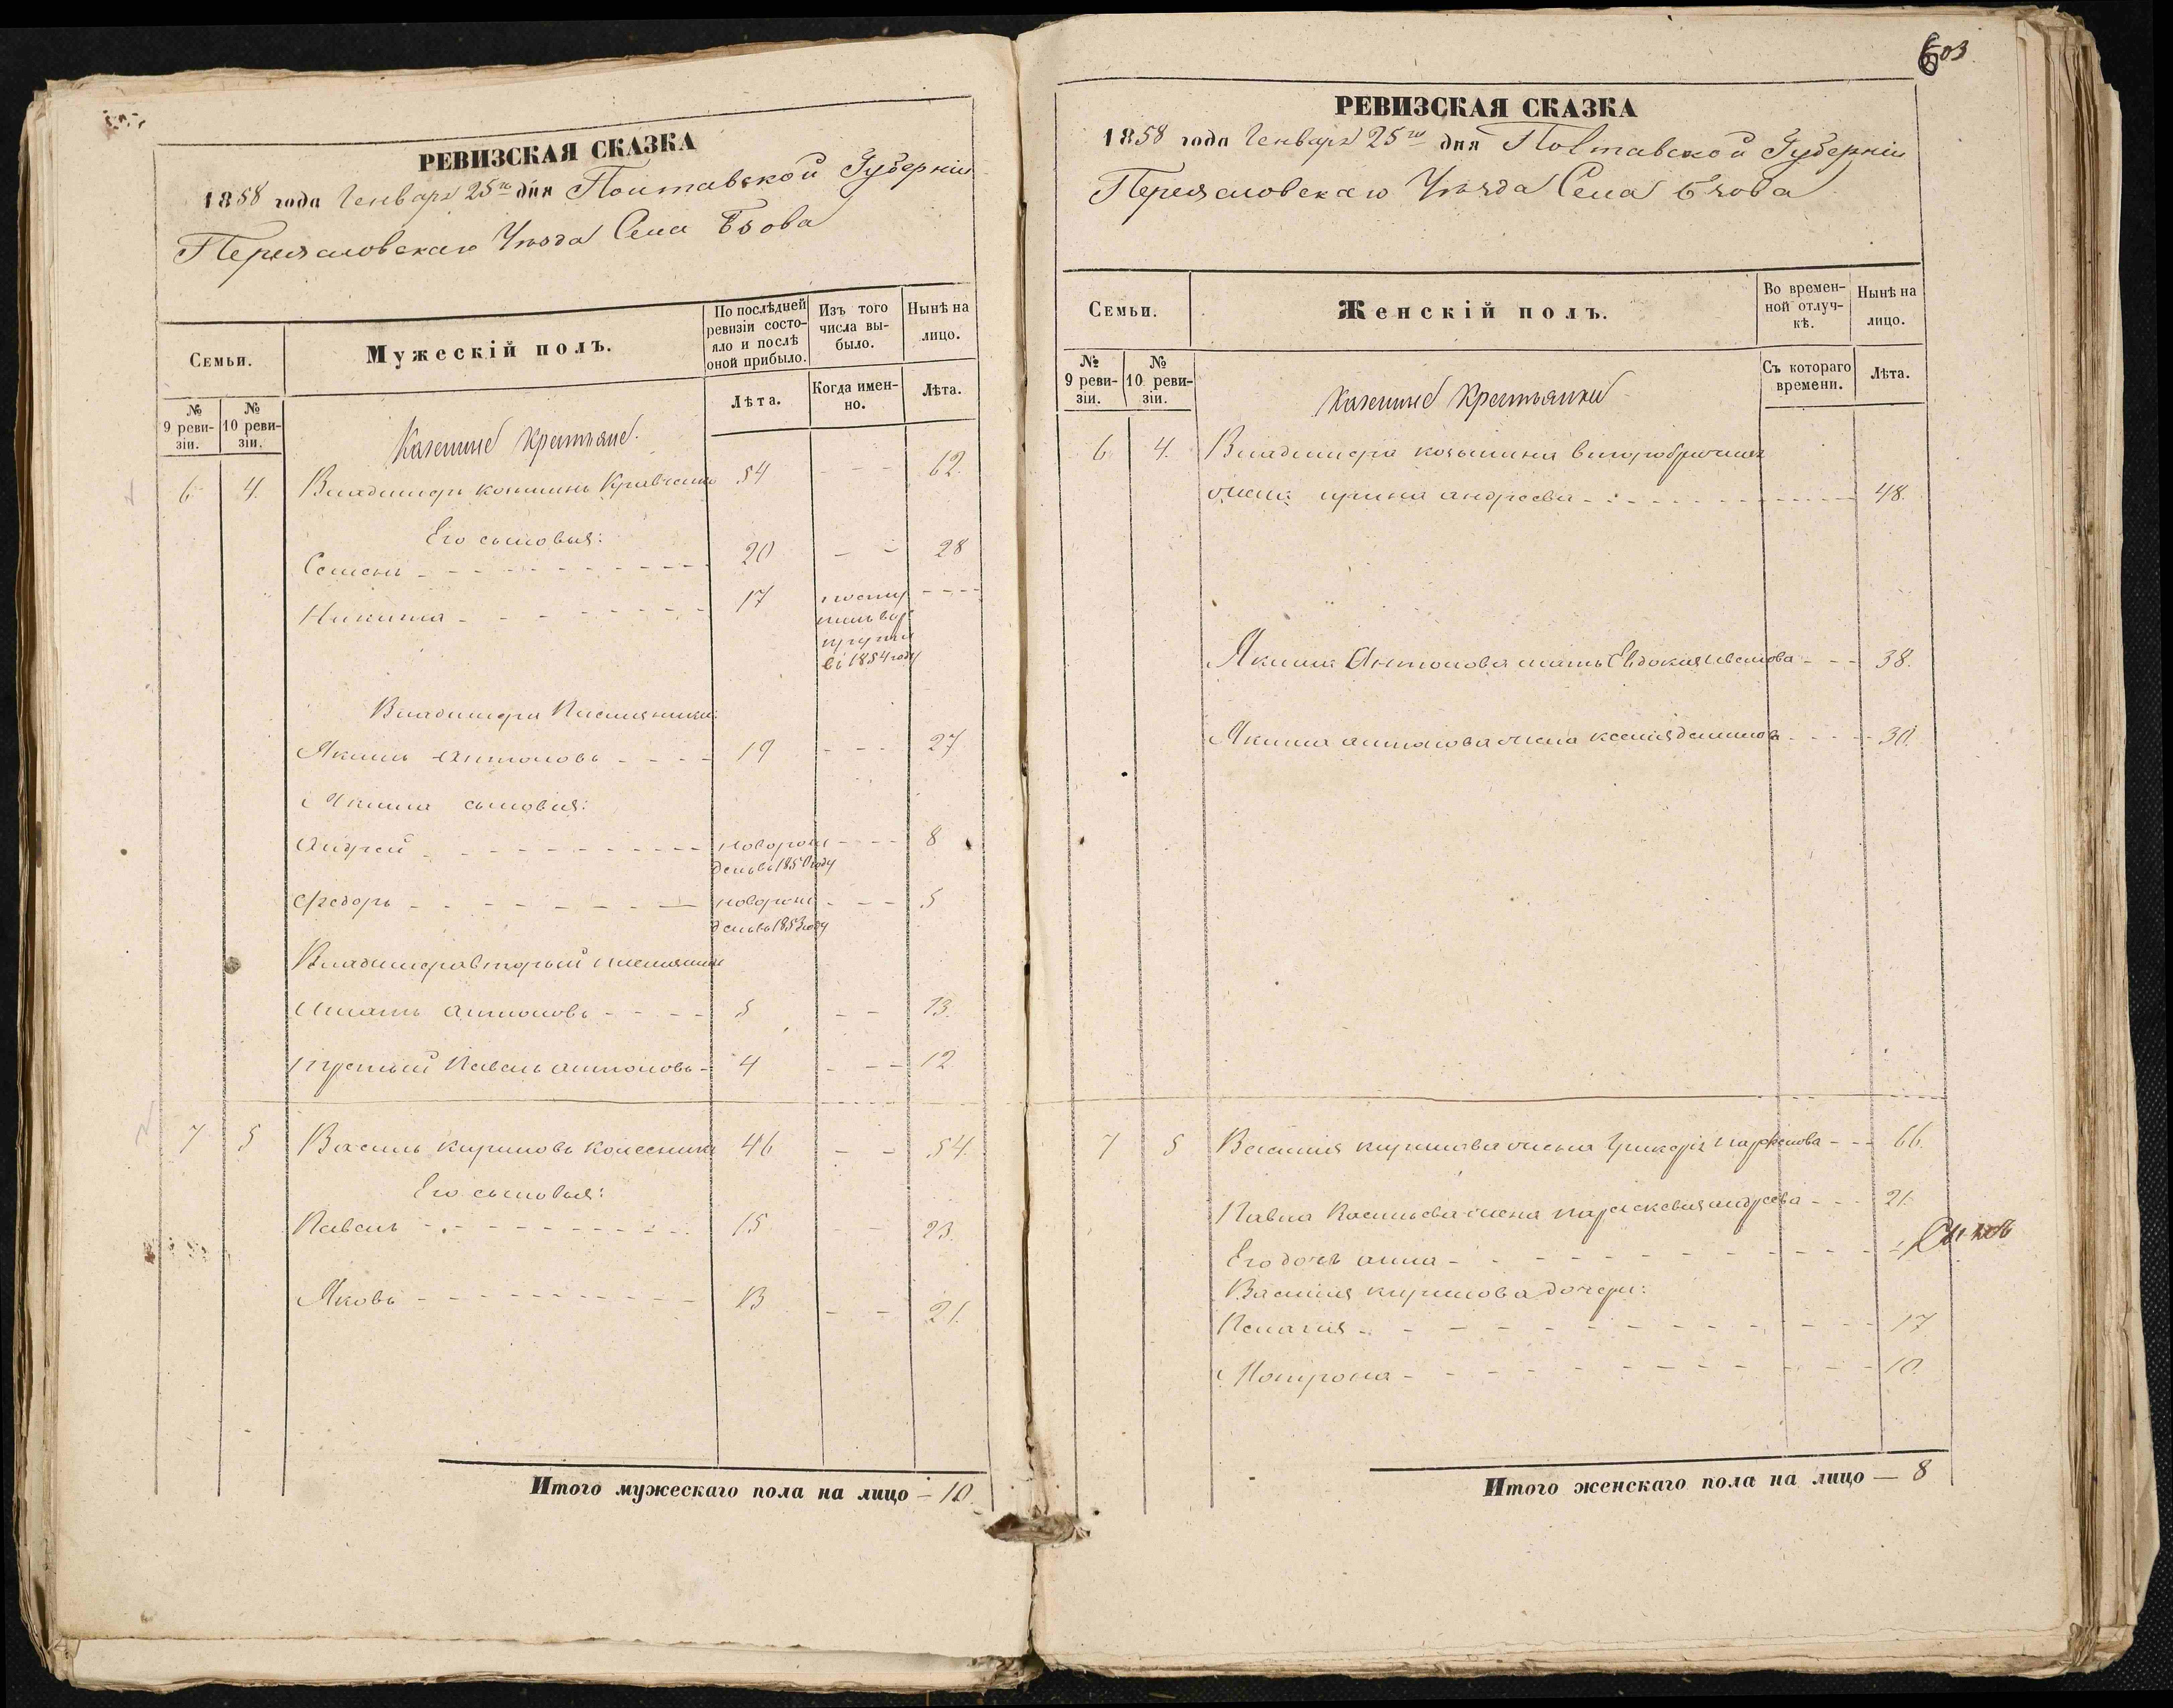 603
РЕВИЗСКАЯ СКАЗКА
1858 года Генваря 25го дня Полтавской Губерніи
Переяславскаго Уѣзда Села
Семьи.
Мужескій полъ.
По послѣдней ревизіи состояло и послѣ оной прибыло.
Изъ того числа выбыло.
Нынѣ на лицо.
№ 9 ревизіи.
№ 10 ревизіи.
Лѣта.
Когда именно.
Лѣта.
Казенные Крестьяне.
6 4. Владимиръ Кравченко 54 - - - 62.
Его сыновья:
Семенъ - - - 20 - - 28
Никита - - - 17 - - -
въ 1854 году
Владимира Племяники:
Якимъ Антоновъ - - - 19 - - - 27
Якима сыновья:
Андрей - - - новорожденъ въ 1850 году - - - 8
Федоръ - - - новорожденъ въ 1853 году - - - 5
Владимира вторый племяникъ
Антоновъ - - - 5 - - 13.
третьій Павелъ Антоновъ - 4 - - - 12
7 5 Василь Кириловъ Колесникъ 46 - - 54.
Его сыновья:
Павелъ - - - 15 - 23.
Яковъ - - - 13 - - 21.
Итого мужескаго пола на лицо - 10.
РЕВИЗСКАЯ СКАЗКА
1858 года Генваря 25го дня Полтавской Губерніи
Переяславскаго Уѣзда Села
Семьи.
Женскій полъ.
Во временной отлучкѣ.
Нынѣ на лицо.
№ 9 ревизіи.
№ 10 ревизіи.
Съ котораго времени.
Лѣта.
Казенные Крестьянки
6 4. Владимира второбрачная
жена Ирина Андреева - - - 48.
Якима Антонова мать Евдокия Иванова - - - 38.
Якима Антонова жена Ксения - - - 30.
7 5 Василия Кирилова жена Гликерія Парфенова - - - 66.
Павла Васильева жена Параскевия Андреева - - - 21.
Его дочь Анна - - -
Василия Кирилова дочери:
Пелагия - - - 17
Мотрона - - - 10.
Итого женскаго пола на лицо — 8